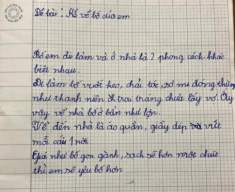 Đề bài: Kể về bố của em
Bố em đi làm và ở nhà là 2 phong cách khác
biệt nhau.
Đi làm bố vuốt keo, chải tóc, sơ mi đóng thùng
như thanh niên trai tráng chưa lấy vợ. Ấy
vậy về nhà bố ở bẩn như lợn.
Về đến nhà là áo quần, giầy dép vứt
mỗi cái 1 nơi
Giá như bố gọn gành, sạch sẽ hơn một chút
thì em sẽ yêu bố hơn